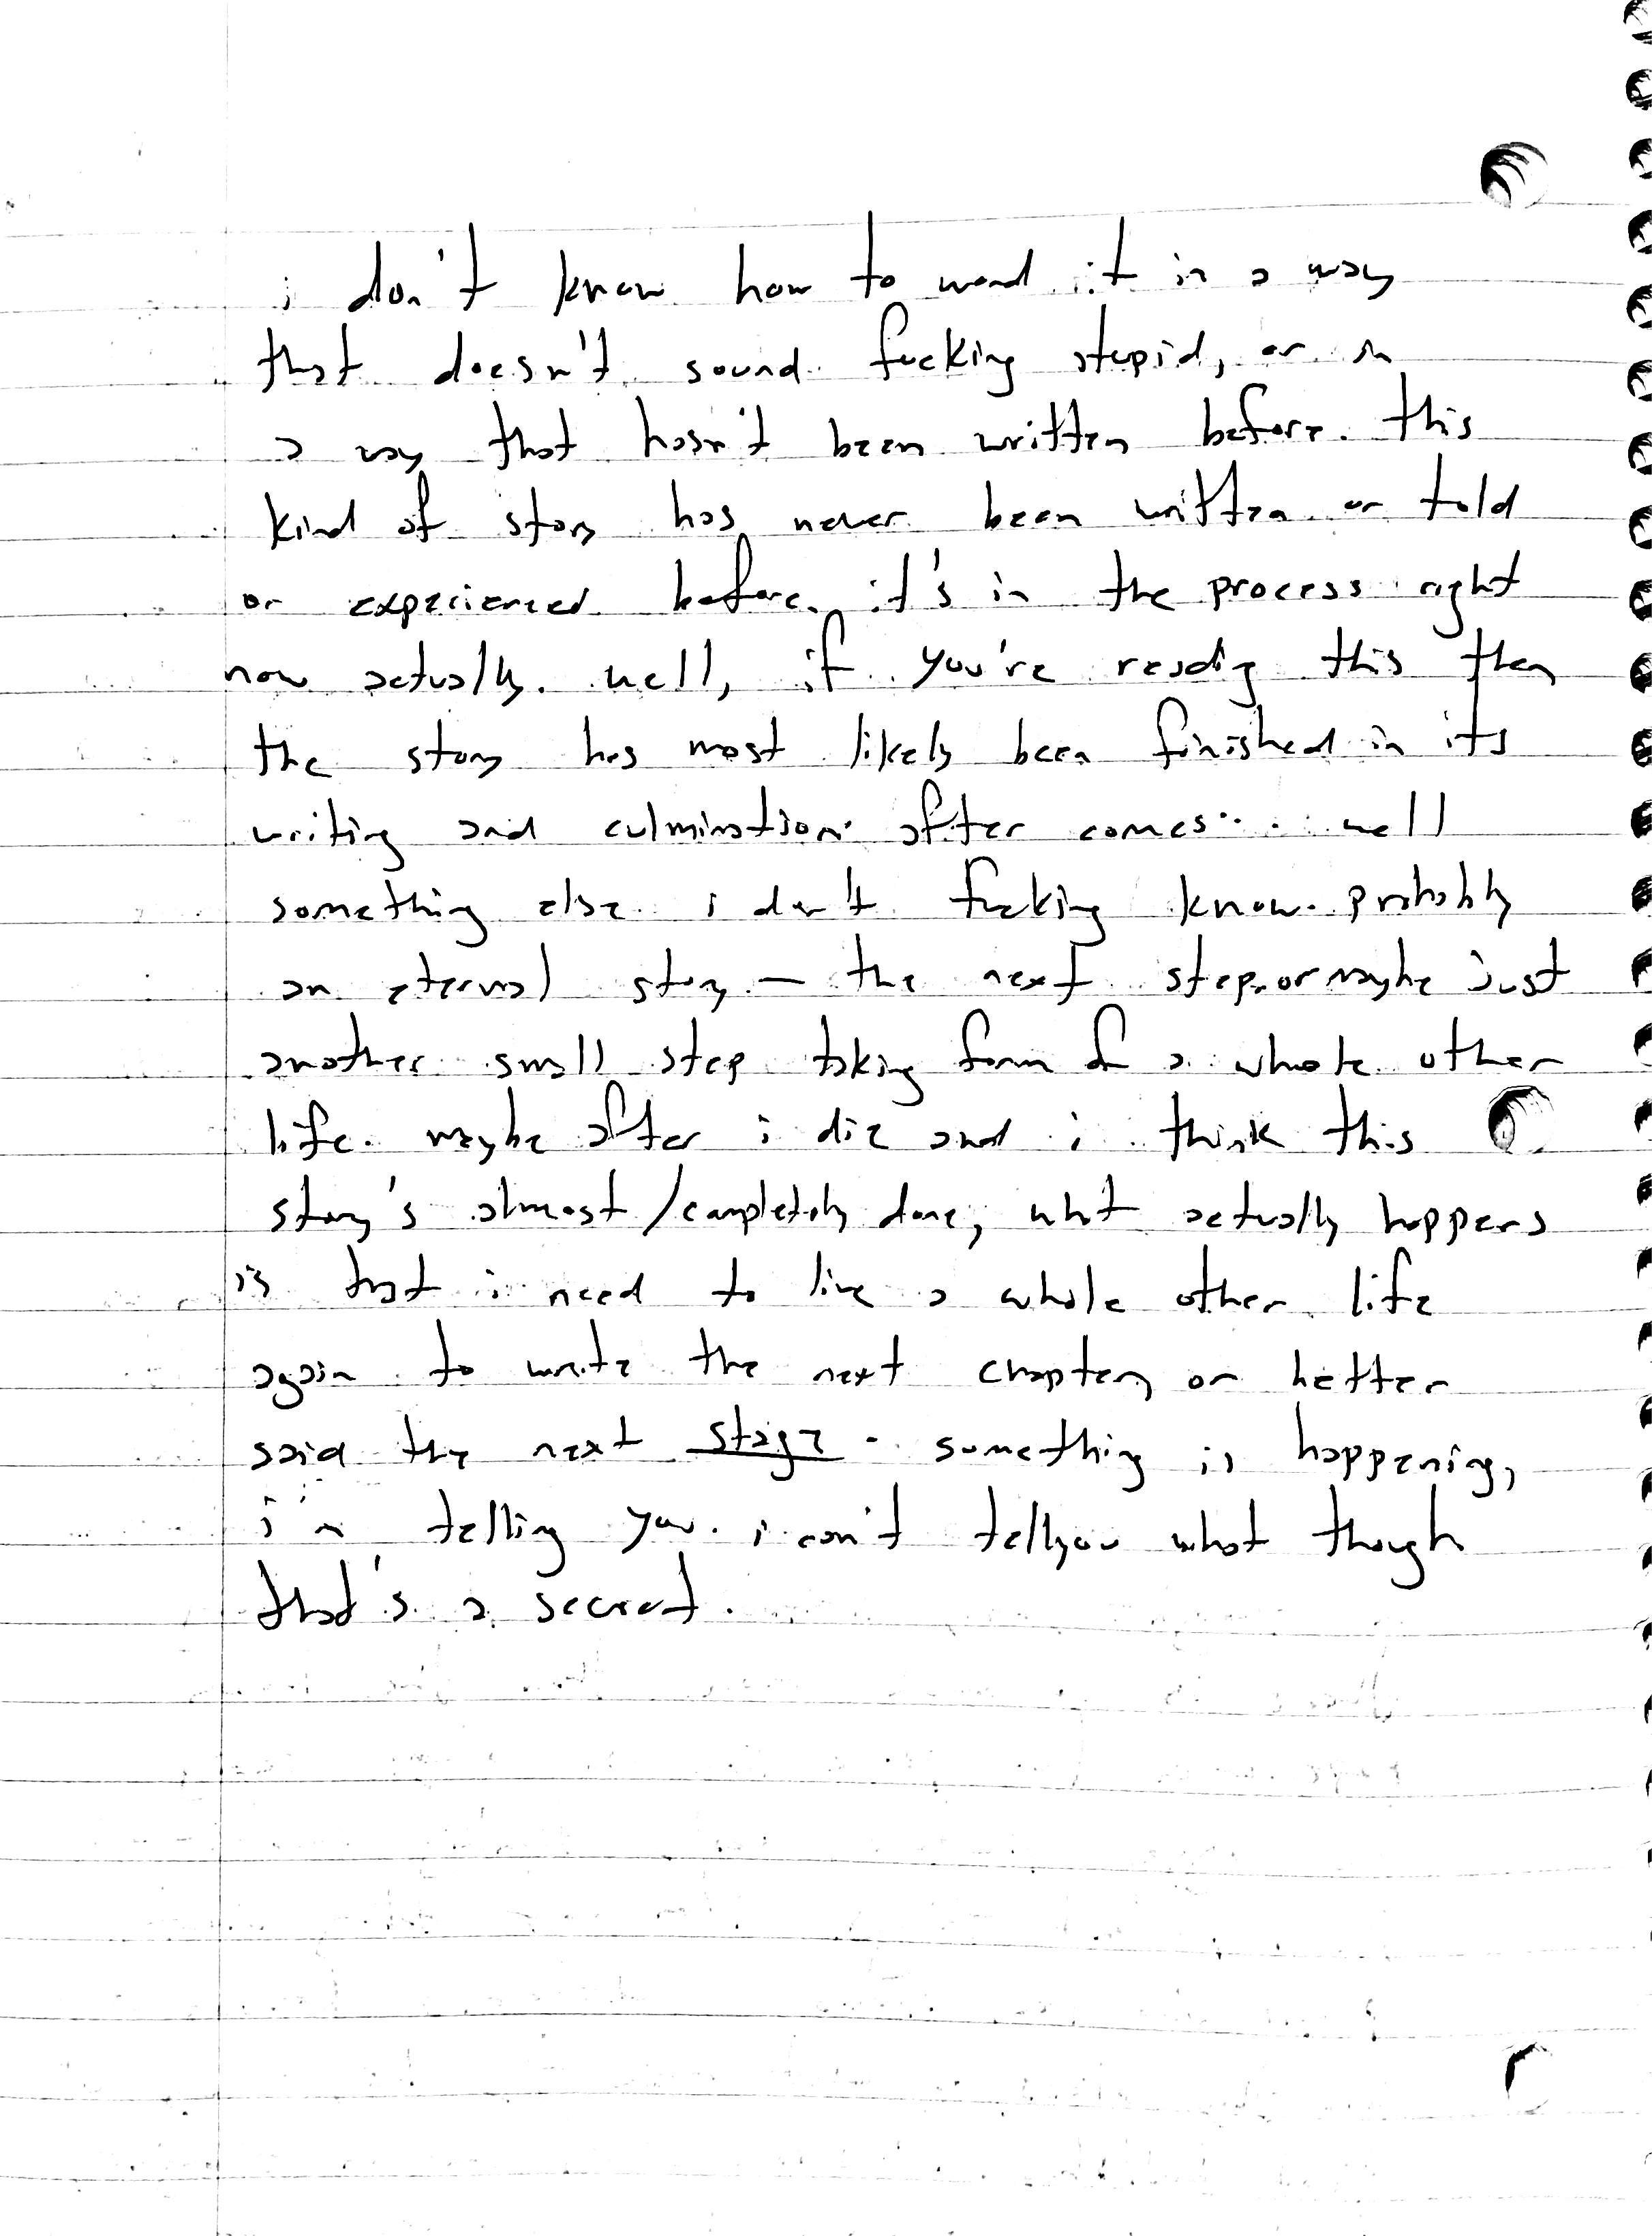 i don't know how to word it in a way
that doesn't sound fucking stupid, or in
a way that hasn't been written before. this
kind of story has never been written or told
or experienced before. it's in the process right
now actually. well, if you're reading this then
the story has most likely been finished in its
writing and culmination. after comes... well
something else i don't fucking know. probably
an eternal story — the next step. or maybe just
another small step taking form of a whole other
life. maybe after i die and i think this
story's almost/completely done, what actually happens
is that i need to live a whole other life
again to write the next chapter, or better
said the next stage. something is happening,
i'm telling you. i can't tell you what though
that's a secret.